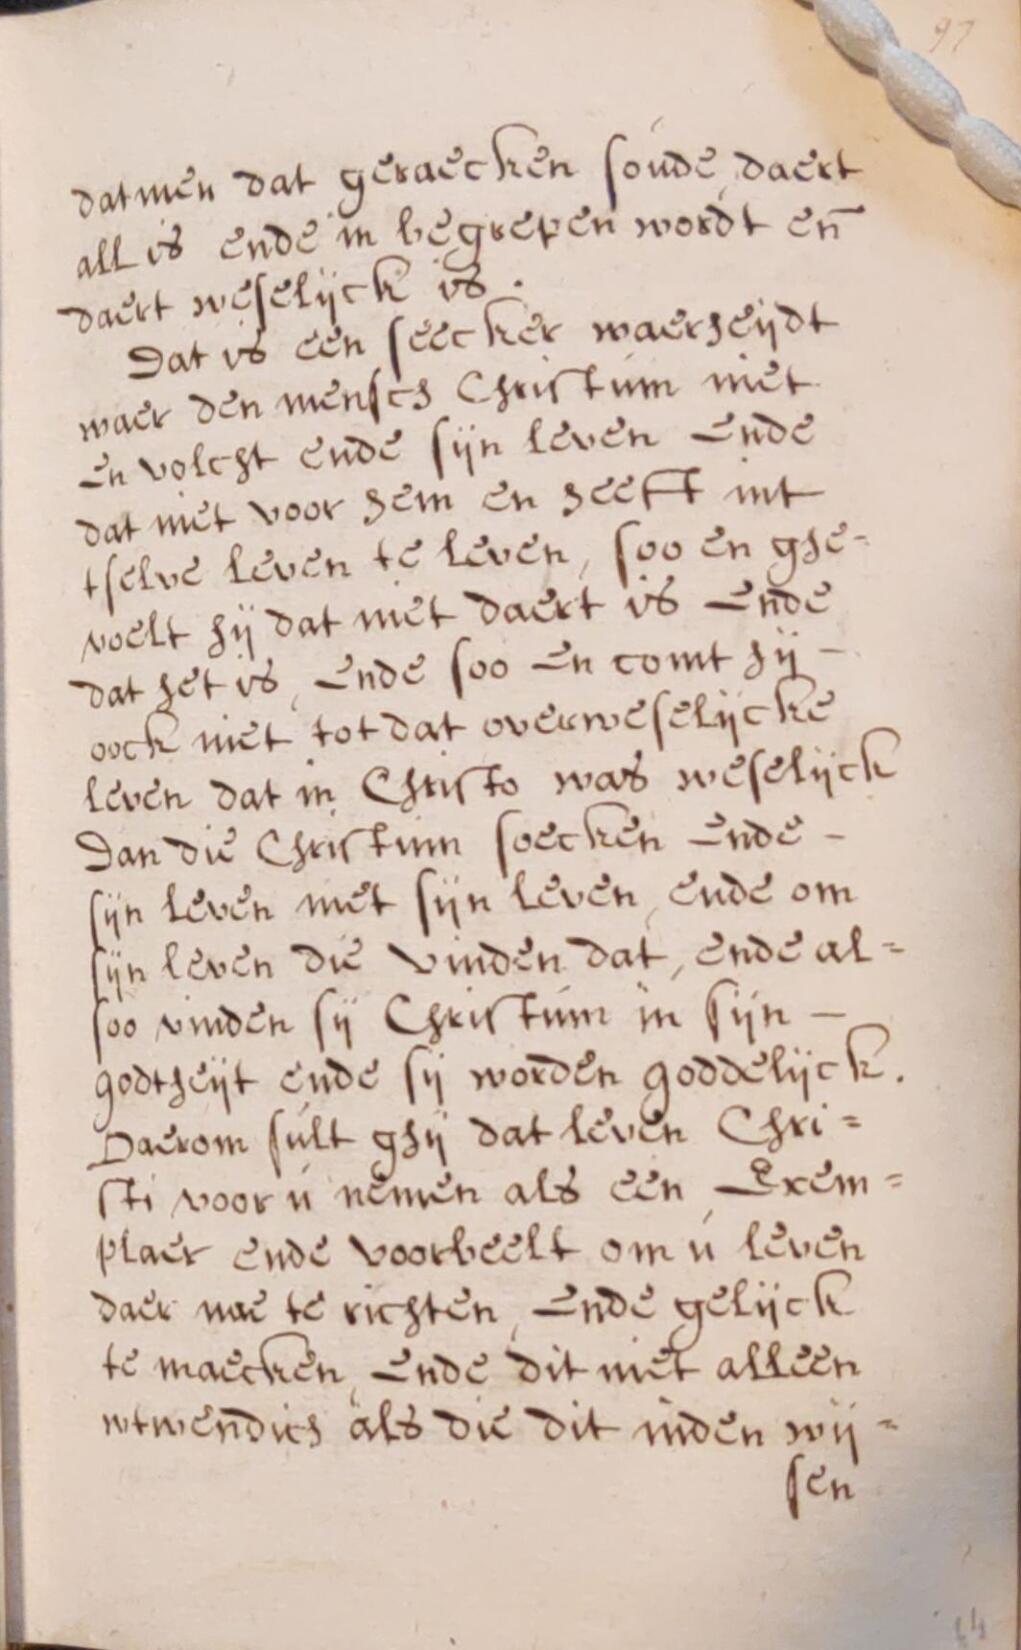 97
datmen dat geraecken soude, daert
all is ende in begrepen wordt en̄
daert weselijck is.
Dat is een seecker waerheijdt
waer den mensch Christum niet
En volcht ende sijn leven Ende
dat niet voor hem en heeft int
tselve leven te leven, soo en ghe=
voelt hij dat niet daert is Ende
dat het is, Ende soo En comt hij —
oock niet tot dat overweselijcke
leven dat in Christo was weselijck
Dan die Christum soecken Ende —
sijn leven met sijn leven, ende om
sijn leven die vinden dat, ende al=
soo vinden sij Christum in sijn —
godtheijt ende sij worden goddelijck.
Daerom sult ghij dat leven Chri=
sti voor u nemen als een Exem=
plaer ende voorbeelt om u leven
daer nae te richten, Ende gelijck
te maecken, Ende dit niet alleen
wtwendich als die dit inden wij=
sen